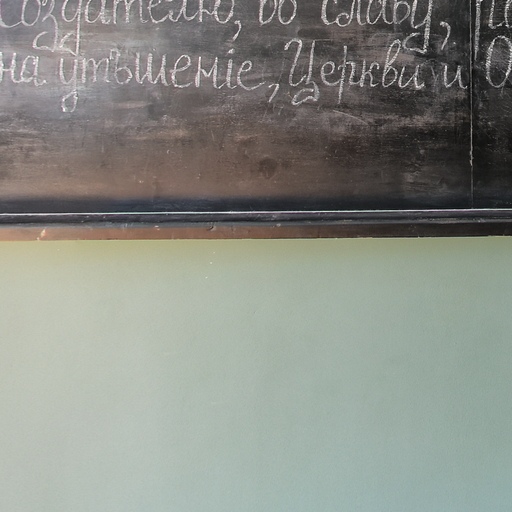 Создателю, во славу,
на утѣшеніе, Церкви и